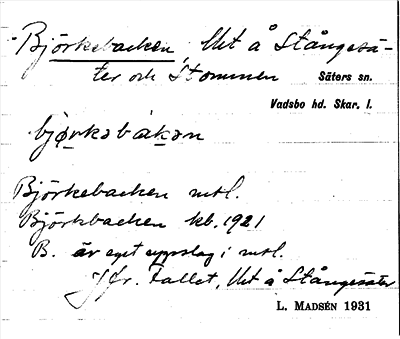 Björkebacken, lht å Stångesä-
ter och Stommen Säters sn.
Vadsbo hd. Skar. l.
bjø̣rkabakan
Björkebacken mtl.
Björkbacken kb. 1921
B. är eget uppslag i mtl.
Jfr. Fallet, lht å Stångesäter
L. MADSÉN 1931